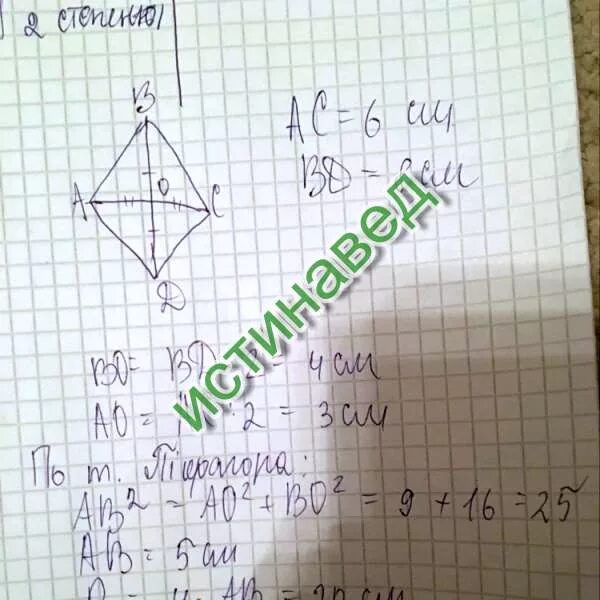 2 степенью
B
A O C
D
AC = 6 см
BD = см
BO = BD 2 = 4 см
AO = : 2 = 3 см
По т. Піфагора:
AB² = AO² + BO² = 9 + 16 = 25
AB = 5 см
P = 4 · AB = 20 см
истинавед